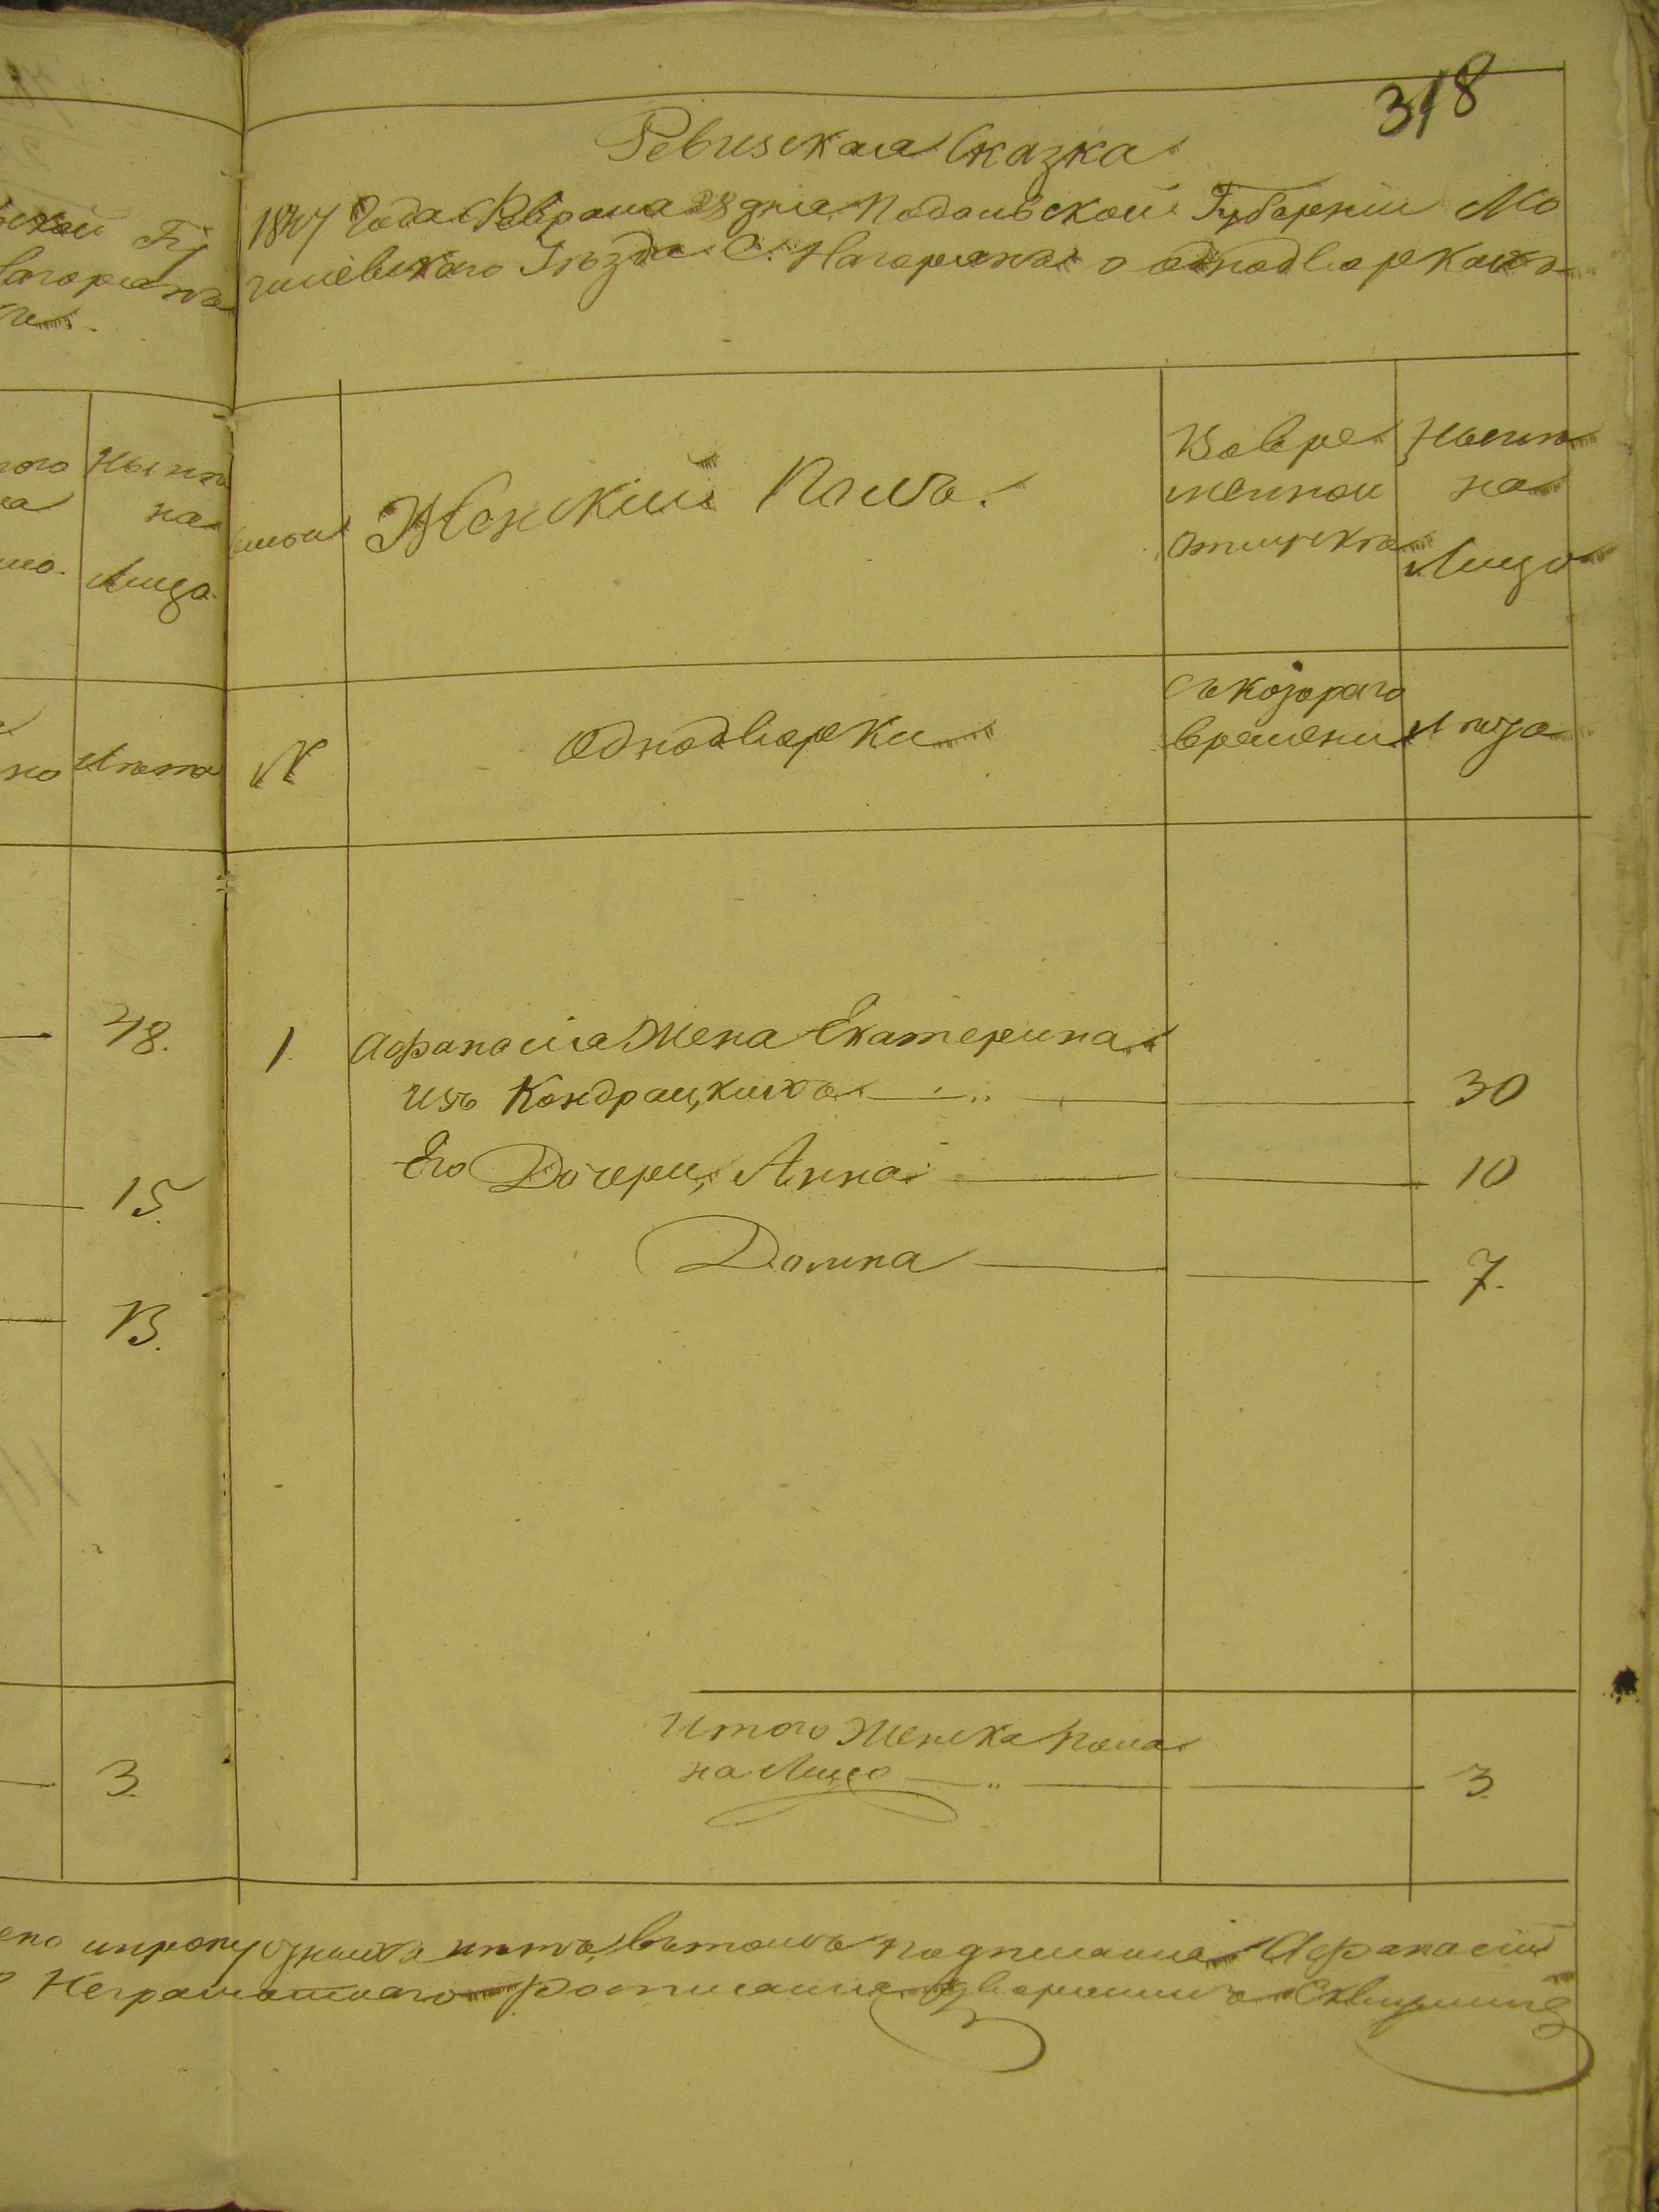 318
Ревизская Сказка
1847 Года Февраля 28 дня Подольской Губернии Мо
гилевскаго Уезда С. Нагорянъ о однодворкахъ
Женский Полъ.
Во вре
менной
отлучкѣ
Нынѣ
на
Лицо
№
Однодворки
Съ котораго
времени
Лѣта
1. Афанасия Жена Екатерина
изъ Кондрацкихъ 30
Его Дочери, Анна 10
Домна 7.
Итого Женска Пола
на Лицо 3.
Нынѣ
на
Лицо.
Лѣта
48.
15.
13.
3.
и прописныхъ нѣтъ, въ томъ подписался Афанасий
Неграмотнаго росписался дворянинъ